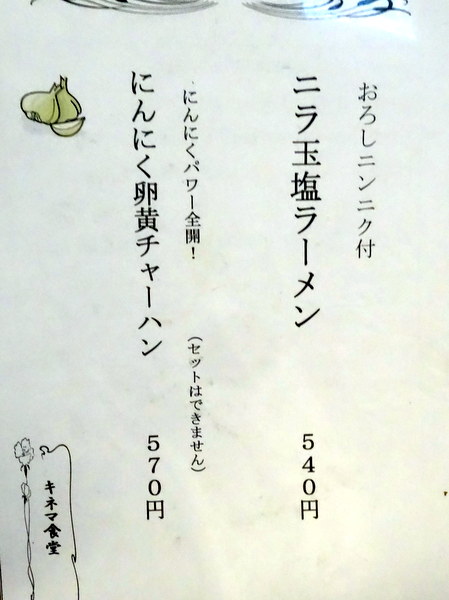 おろしニンニク付
ニラ玉塩ラーメン 540円
にんにくパワー全開！ (セットはできません)
にんにく卵黄チャーハン 570円
キネマ食堂